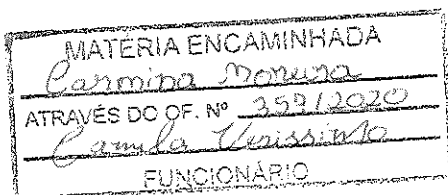 MATÉRIA ENCAMINHADA
Carmina Moreira
ATRAVÉS DO OF. Nº 359/2020
Camila Verissimo
FUNCIONÁRIO